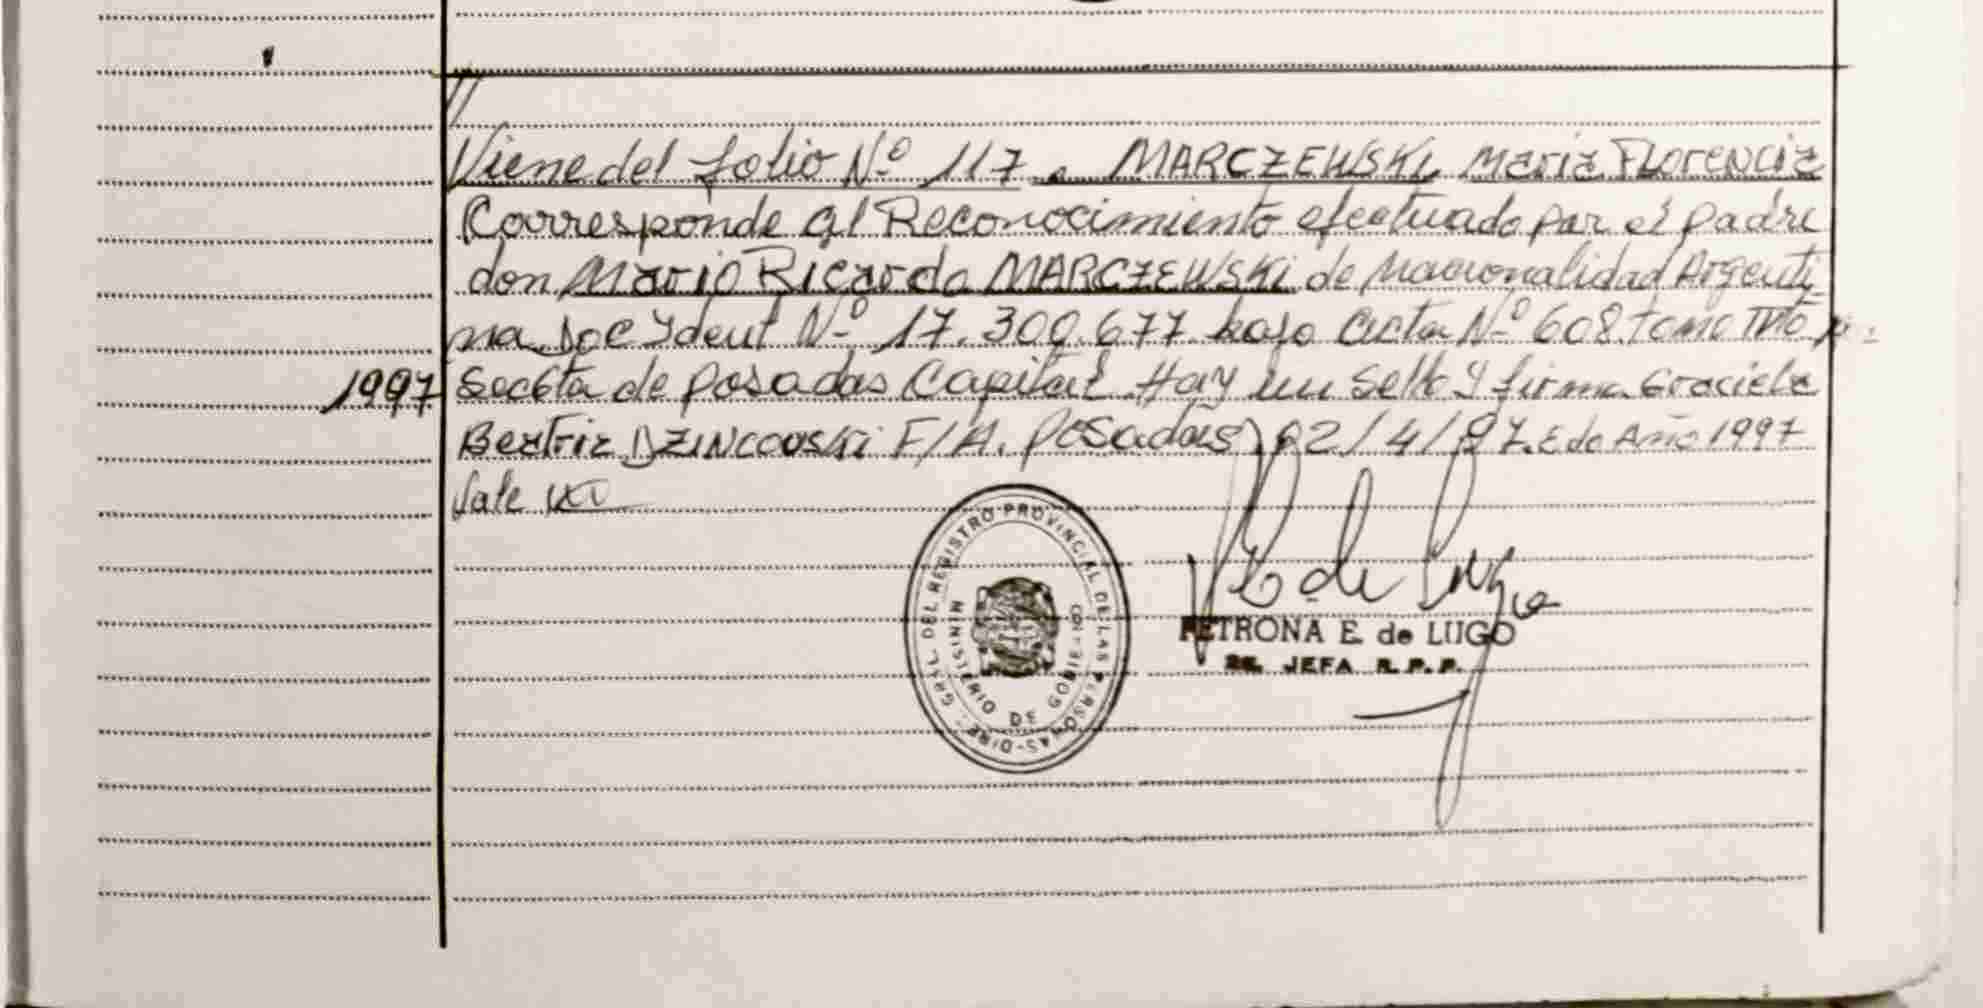 //
Viene del folio Nº 117. MARCZEWSKI, Maria Florencia
Corresponde al Reconocimiento efectuado por el padre
don Mario Ricardo MARCZEWSKI de Nacionalidad Argenti-
na Doc Ident Nº 17.300.677 bajo Acta Nº 608 tomo
1997 Secc 6ta de Posadas Capital. Hay un Sello y firma Graciela
Beatriz DZINCOVSKI F/A. Posadas 02/4/97. E do Año 1997
Vale
DIRE. GRAL. DEL REGISTRO PROVINCIAL DE LAS PERSONAS-
MINISTERIO DE GOBIE
PETRONA E. de LUGO
JEFA R.P.P.